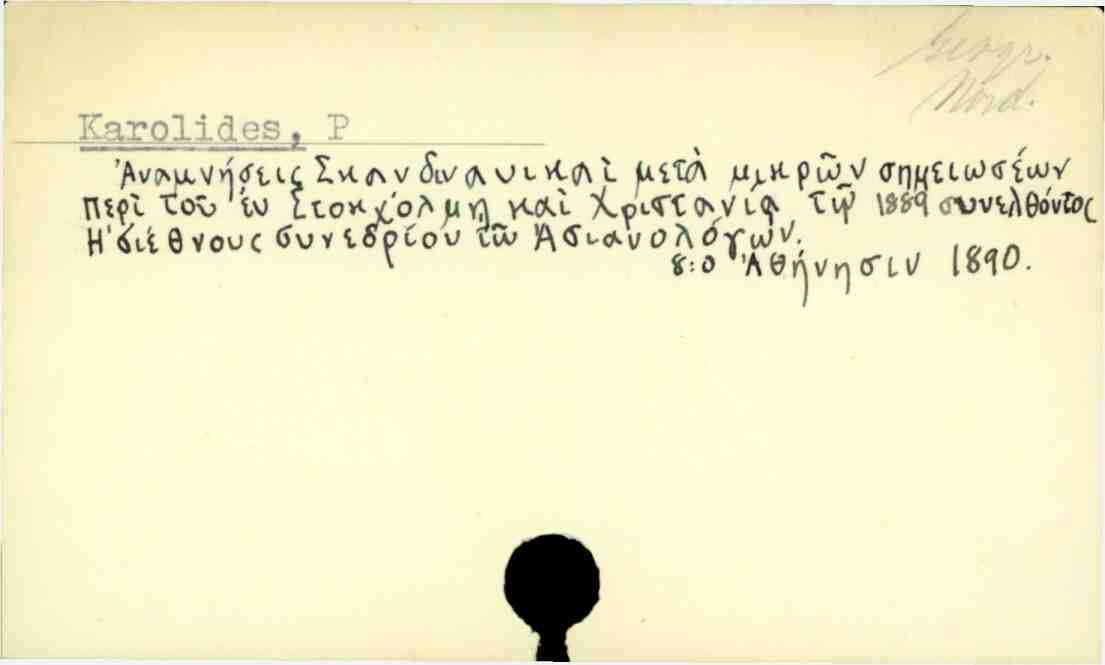 Geogr.
Nord.
Karolides, P
Ἀναμνήσεις Σκανδιναυικαὶ μετὰ μικρῶν σημειωσέων
περὶ τοῦ ἐν Στοκχόλμῃ καὶ Χριστανίᾳ τῷ 1889 συνελθόντος
Η' διέθνους συνεδρίου τῶ Ἀσιανολόγων.
8:o Ἀθήνησιν 1890.